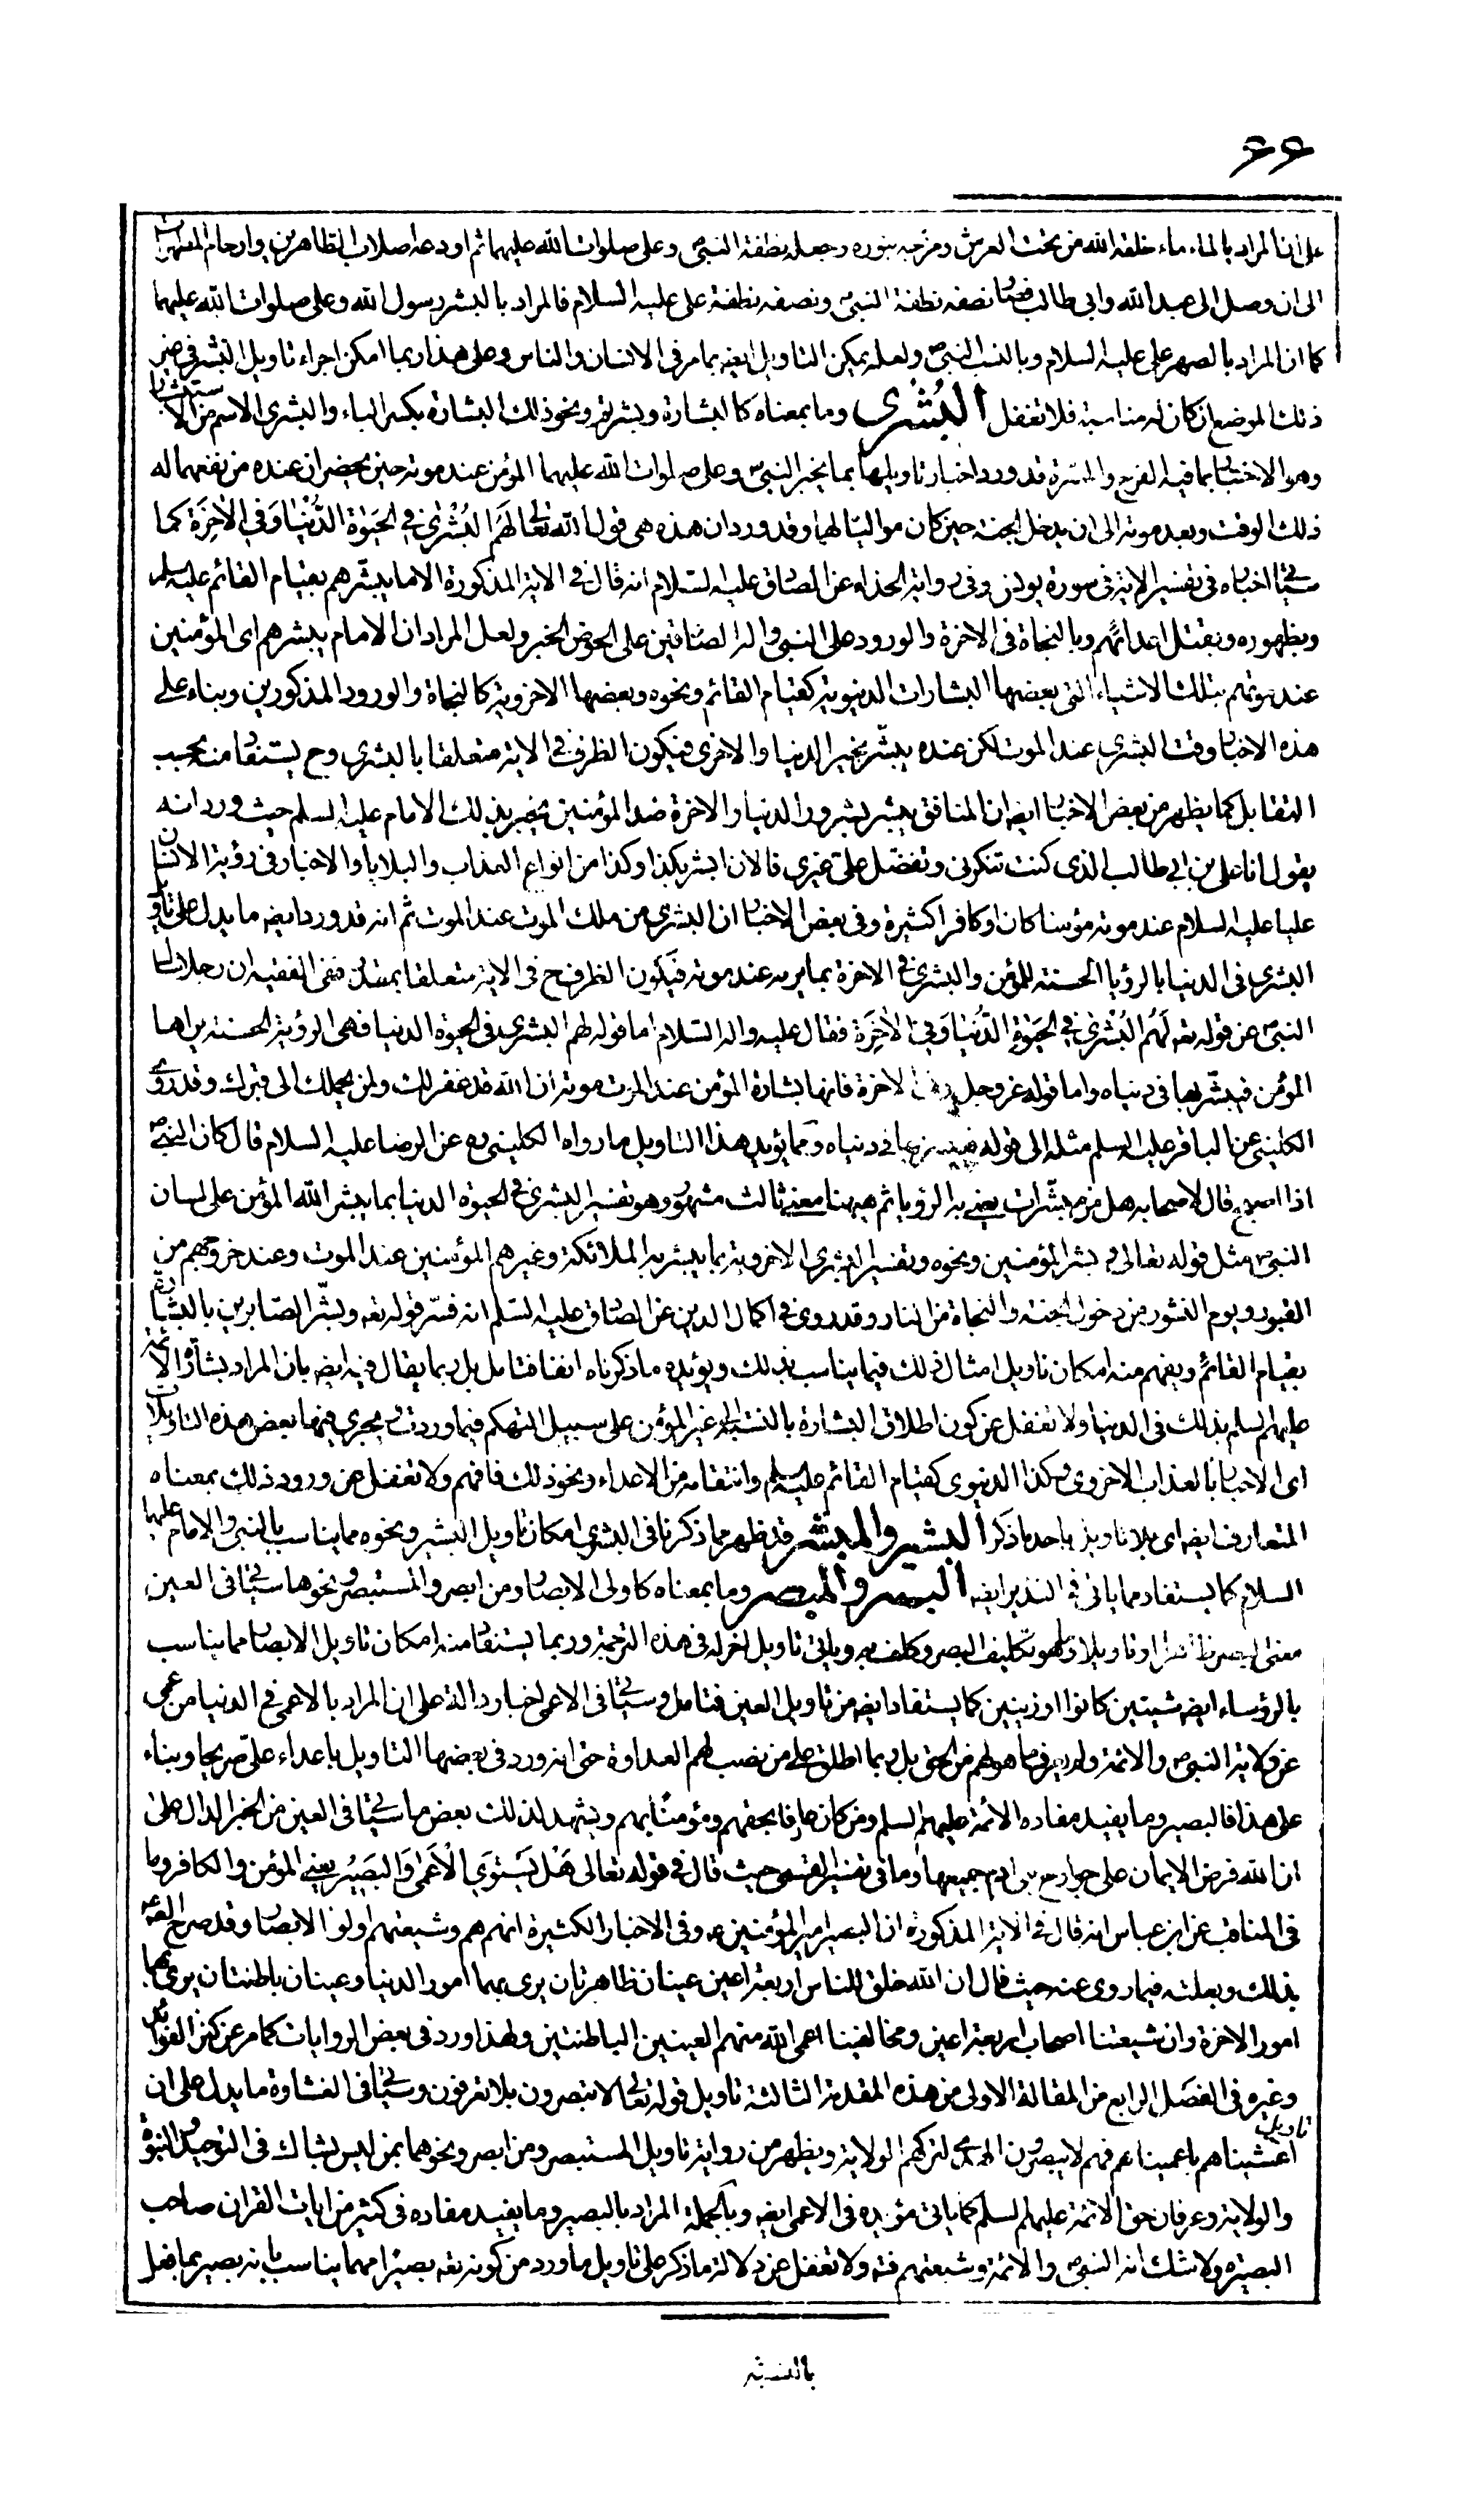 ٦٦
على ان المراد بالماء ماء خلقه الله من تحت العرش ومزجه بنوره وجعله نطفة النبى ص وعلى صلوات الله عليهما ثم اودعه اصلاب الطاهرين وارحام المطهرات
الى ان وصل الى عبد الله وابى طالب فصار نصفه نطفة النبى ص ونصفه نطفة على عليه السلام فالمراد بالبشر رسول الله وعلى صلوات الله عليهما
كما ان المراد بالصهر على عليه السلام وبالنسب النبى ص ولعله يمكن التاويل ايضه بما مر فى الانسان والناس وعلى هذا ربما امكن اجراء تاويل البشر فى غير
ذلك الموضع ان كان له مناسبة فلا تغفل البُشْرى وما بمعناه كالبشارة وبشر له ونحو ذلك البشارة بكسر الباء والبشرى الاسم من الاستبشار
وهو الاخبار بما فيه الفرح والمسرة قد ورد اخبار تاويلها بما يخبر النبى ص وعلى صلوات الله عليهما المؤمن عند موته حين يحضران عنده من نفعهما له
ذلك الوقت وبعد موته الى ان يدخل الجنة حين كان مواليا لهما وقد ورد ان هذه هى قول الله تعالى لَهُمُ البُشْرىٰ فِي الحَيٰوةِ الدُّنْيٰا وَفِي الْآخِرَةِ كما
سياتى اخباره فى تفسير الاية فى سورة يونس وفى رواية الحذاء عن الصادق عليه السلام انه قال فى الاية المذكورة الامام يبشرهم بقيام القائم عليه السلم
وبظهوره وبقتل اعدائهم وبالنجاة فى الاخرة والورود على النبى واله الصادقين على الحوض الخبر ولعل المراد ان الامام يبشرهم اى المؤمنين
عند موتهم بتلك الاشياء التى بعضها البشارات الدنيوية كقيام القائم ونحوه وبعضها الاخروية كالنجاة والورود المذكورين وبناء على
هذه الاخبار وقت البشرى عند الموت لكن عنده يبشر بخير الدنيا والاخرى فيكون الظرف فى الاية متعلقا بالبشرى وح يستفاد منه بحسب
التقابل كما يظهر من بعض الاخبار ايضه ان المنافق يبشر بشرور الدنيا والاخرة ضد المؤمنين يخبر بذلك الامام عليه السلم حيث ورد انه
يقول انا على بن ابى طالب الذى كنت تنكرنى وتفضل على غيرى فالان ابشر بكذا وكذا من انواع العذاب والبلايا والاخبار فى رؤية الانسان
عليا عليه السلام عند موته مؤمنا كان او كافرا كثيرة وفى بعض الاخبار ان البشرى من ملك الموت عند الموت ثم انه قد ورد ايضه ما يدل على تاويل
البشرى فى الدنيا بالرؤيا الحسنة للمؤمن والبشرى فى الاخرة بما يرىه عند موته فيكون الظرف ح فى الاية متعلقا بمقدر ففى الفقيه ان رجلا سال
النبى ص عن قوله تعه لَهُمُ البُشْرىٰ فِي الحَيٰوةِ الدُّنْيٰا وَفِي الْآخِرَةِ فقال عليه واله السلام اما قوله لهم البشرى فى الحيوة الدنيا فهى الرؤية الحسنة يراها
المؤمن فيبشر بها فى دنياه واما قوله عز وجل وفى الاخرة فانها بشارة المؤمن عند الموت موته ان الله قد غفر لك ولمن يحملك الى قبرك وقد روى
الكلينى عن الباقر عليه السلم مثله الى قوله فيبشر بها فى دنياه ومما يؤيد هذا التاويل ما رواه الكلينى ره عن الرضا عليه السلام قال كان النبى ص
اذا اصبح قال لاصحابه هل من مبشّرات يعنى به الرؤيا ثم هيهنا معنى ثالث مشهور وهو تفسير البشرى فى الحيوة الدنيا بما يبشر الله المؤمن على لسان
النبى ص مثل قوله تعالى وبشر المؤمنين ونحوه وتفسير البشرى الاخروية بما يبشر به الملائكة وغيرهم المؤمنين عند الموت وعند خروجهم من
القبور ويوم النشور من دخول الجنة والنجاة من النار وقد روى فى اكمال الدين عن الصادق عليه السلم انه فسر قوله تعه وبشّر الصابرين بالبشارة
بقيام القائم ويفهم منه امكان تاويل امثال ذلك فيما يناسب بذلك ويؤيده ما ذكرناه انفا فتامل بل ربما يقال فيه ايضه بان المراد بشارة الائمة
عليهم السلم بذلك فى الدنيا ولا تغفل عن كون اطلاق البشارة بالنسبة الى غير المؤمن على سبيل التهكم فيما وردت ويجرى فيها بعض هذه التاويلات
اى الاخبار بالعذاب الاخروى وكذا الدنيوى كقيام القائم عليه السلم وانتقامه من الاعداء ونحو ذلك فافهم ولا تغفل عن ورود ذلك بمعناه
المتعارف ايضه اى بلا تاويل باحد ما ذكر البشير والمبشر قد ظهر مما ذكرنا فى البشرى امكان تاويل البشير ونحوه مما يناسب بالنبى والامام عليهما
السلام كما يستفاد مما ياتى فى النذير ايضه البصير والمبصر وما بمعناه كاولى الابصار ومن ابصر والمستبصر ونحوها سياتى فى العين
معنى البصر ظاهرا وتاويلا وهو تكليف البصر وكلف به وياتى تاويل اخر له فى هذه الترجمة وربما يستفاد منه امكان تاويل الابصار مما يناسب
بالرؤساء ايضه شيئين كانوا او زينين كما يستفاد ايضه من تاويل العين فتامل وسياتى فى الاعمى اخبار دالة على ان المراد بالاعمى فى الدنيا من عمى
عن ولاية النبى ص والائمة ولم يعرف ما هو لهم من الحق بل ربما اطلق على من نصب لهم العداوة حتى انه ورد فى بعضها التاويل باعداء على ع صريحا وبناء
على هذا فالبصير وما يفيد مفاده الائمة عليهم السلم ومن كان عارفا بحقهم ومؤمنا بهم ويشهد لذلك بعض ما سياتى فى العين من الخبر الدال على
ان الله فرض الايمان على جوارح بنى ادم جميعها وما فى تفسير القمى حيث قال فى قوله تعالى هَلْ يَسْتَوِي الْأَعْمىٰ وَالْبَصِيرُ يعنى المؤمن والكافر وما
فى المناقب عن ابن عباس انه قال فى الاية المذكورة ان البصير امير المؤمنين ع وفى الاخبار الكثيرة انهم هم وشيعتهم اولوا الابصار وقد صرح الصادق ع
بذلك وبعلته فيما روى عنه حيث قال ان الله خلق للناس اربعة اعين عينان ظاهرتان يرى بهما امور الدنيا وعينان باطنتان يرى بهما
امور الاخرة وان شيعتنا اصحاب اربعة اعين ومخالفينا اعمى الله منهم العينين الباطنتين ولهذا ورد فى بعض الروايات كما مر عن كنز الفوائد
وغيره فى الفصل الرابع من المقالة الاولى من هذه المقدمة الثالثة تاويل قوله تعالى لا تبصرون بلا تعرفون وسياتى فى الغشاوة ما يدل على ان تاويل
اغشيناهم باعميناهم فهم لا يبصرون الهدى لتركهم الولاية ويظهر من رواية تاويل المستبصر ومن ابصر ونحوهما بمن ليس بشاك فى التوحيد والنبوة
والولاية وعرفان حق الائمة عليهم السلم كما ياتى مؤيده فى الاعمى ايضه وبالجملة المراد بالبصير وما يفيد مفاده فى كثير من ايات القران صاحب
البصيرة ولا شك انه النبى ص والائمة وشيعتهم فته ولا تغفل عن دلالة ما ذكر على تاويل ما ورد من كونه تعه بصيرا مهما يناسب بانه بصير بما فعل
بالنسبة